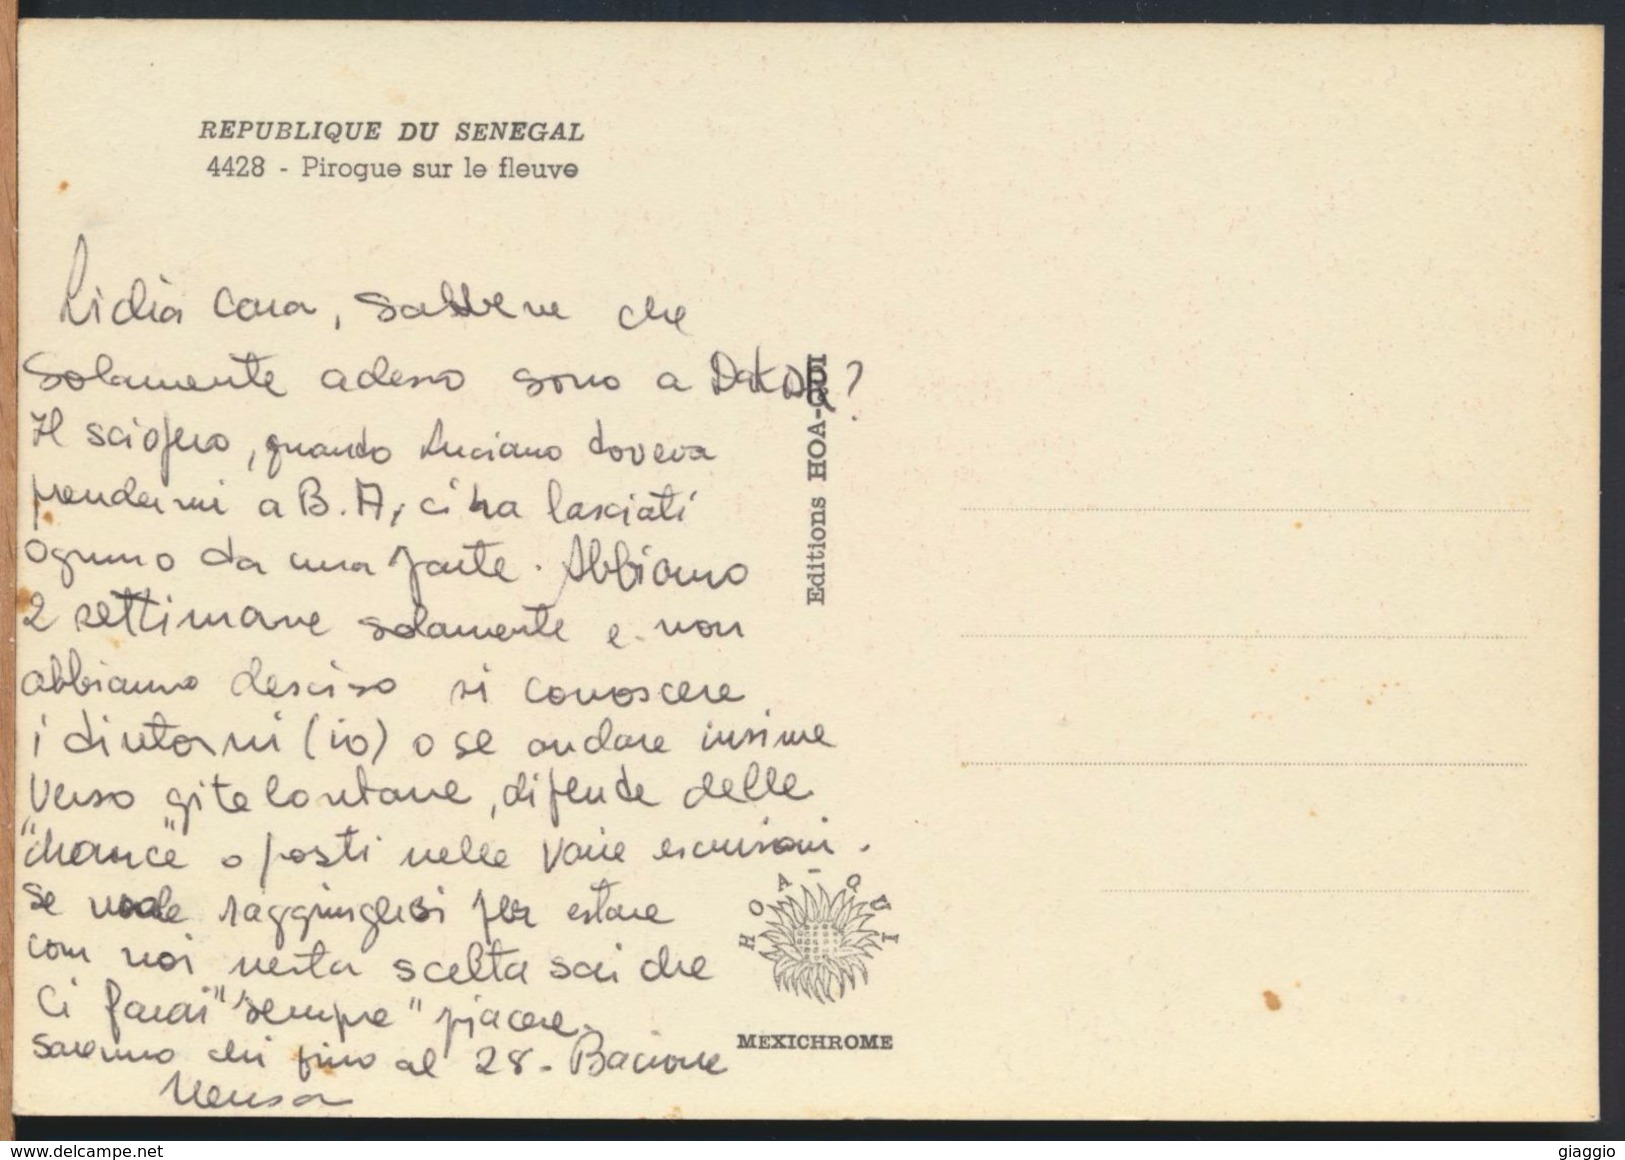 REPUBLIQUE DU SENEGAL
4428 - Pirogue sur le fleuve
Lidia cara, sabbene che
solamente adesso sono a Dakar?
Il sciopero, quando Luciano doveva
prendermi a B.A, ci ha lasciati
ognuno da una parte. Abbiamo
2 settimane solamente e non
abbiamo desciso si conoscere
i dintorni (io) o se andare insime
verso gite lontane, dipende delle
"chance" o posti nelle varie escursioni.
se vuole raggiungerci per estare
com noi nesta scelta sai che
ci farai "sempre" piacere.
saremo chi fino al 28 - Bacione
Neusa
Editions HOA-QUI
HOA-QUI
MEXICHROME
delcampe.net
giaggio